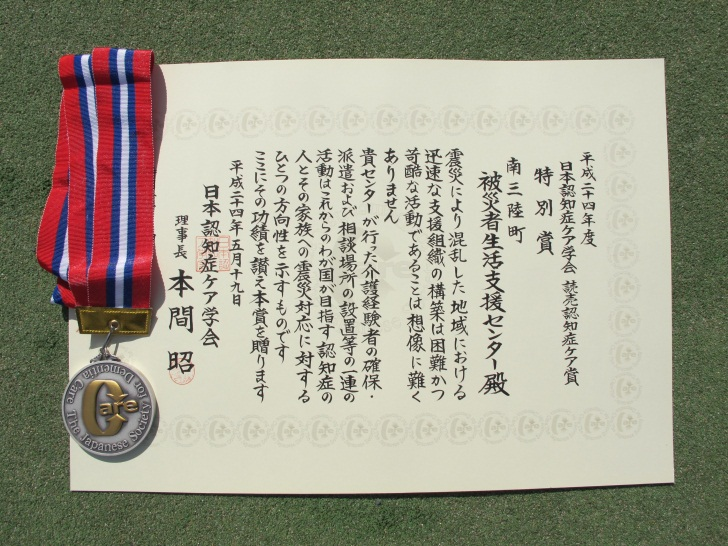 平成二十四年度
日本認知症ケア学会 読売認知症ケア賞
特別賞
南三陸町
被災者生活支援センター殿
震災により混乱した地域における
迅速な支援組織の構築は困難かつ
苛酷な活動であることは想像に難く
ありません
貴センターが行った介護経験者の確保・
派遣および相談場所の設置等の一連の
活動はこれからのわが国が目指す認知症の
人とその家族への震災対応に対する
ひとつの方向性を示すものです
ここにその功績を讃え本賞を贈ります
平成二十四年五月十九日
日本認知症ケア学会
理事長 本間 昭
Care
The Japanese Society for Dementia Care